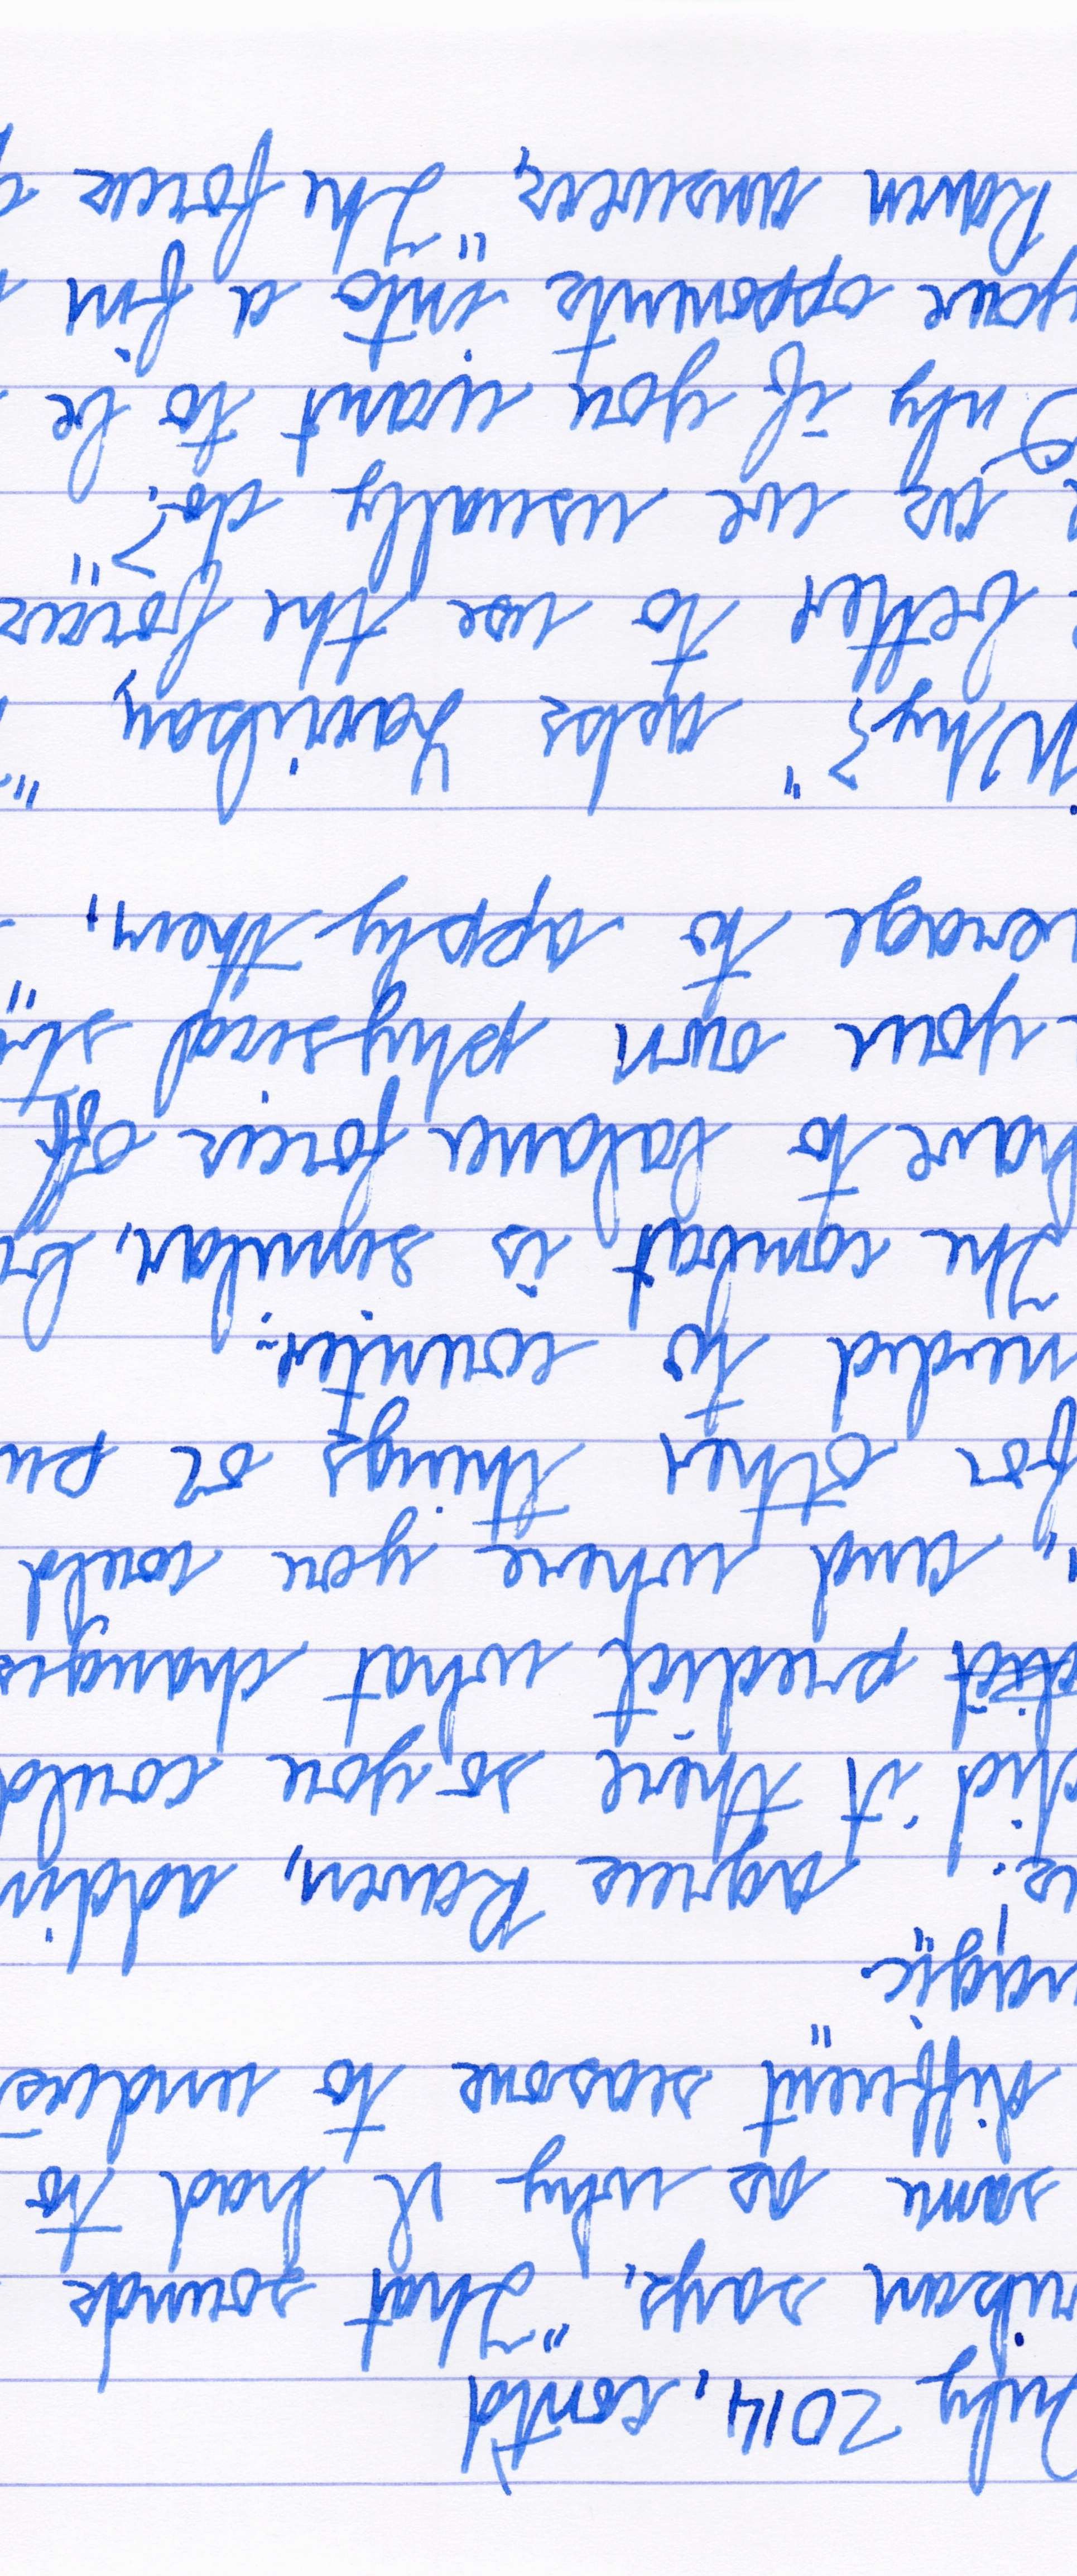 July 2014, cont'd
says, "That sounds
same as why I had to
different seasons to
agrees Raven,
did it there so you could
predict what changes
and where you could
for other things or
needed to counter.
The combat is similar,
have to balance forces off
your own physical
to apply them,"
Why?" asks
better to use the forces
as we usually do?"
Only if you want to be
your opponents into a
Raven answers, "The forces